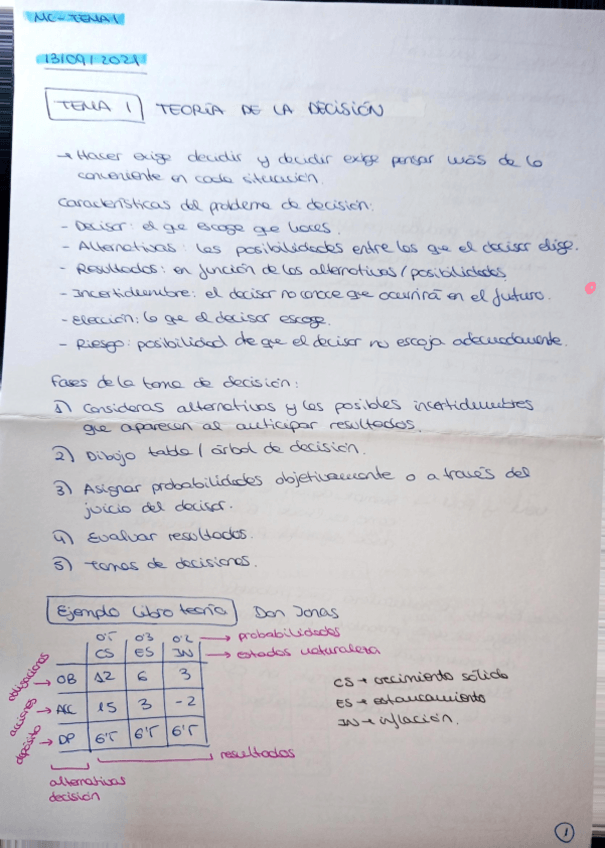 MC - TEMA 1
13/09/2021
TEMA 1 TEORÍA DE LA DECISIÓN
→ Hacer exige decidir y decidir exige pensar más de lo
conveniente en cada situación.
Características del problema de decisión:
- Decisor: el que escoge que haces.
- Alternativas: las posibilidades entre las que el decisor elige.
- Resultados: en función de las alternativas/posibilidades
- Incertidumbre: el decisor no conoce que ocurrirá en el futuro.
- Elección: lo que el decisor escoge.
- Riesgo: posibilidad de que el decisor no escoja adecuadamente.
Fases de la toma de decisión:
1) Consideras alternativas y las posibles incertidumbres
que aparecen al anticipar resultados.
2) Dibujo tabla / árbol de decisión.
3) Asignar probabilidades objetivamente o a través del
juicio del decisor.
4) Evaluar resultados.
5) Tomas de decisiones.
Ejemplo libro teoría Don Jonas
0'5 0'3 0'2 → probabilidades
CS ES IN → estados naturaleza
obligaciones → OB 12 6 3
acciones → AC 15 3 -2
depósito → DP 6'5 6'5 6'5
CS → crecimiento sólido
ES → estancamiento
IN → inflación.
resultados
alternativas
decisión
1